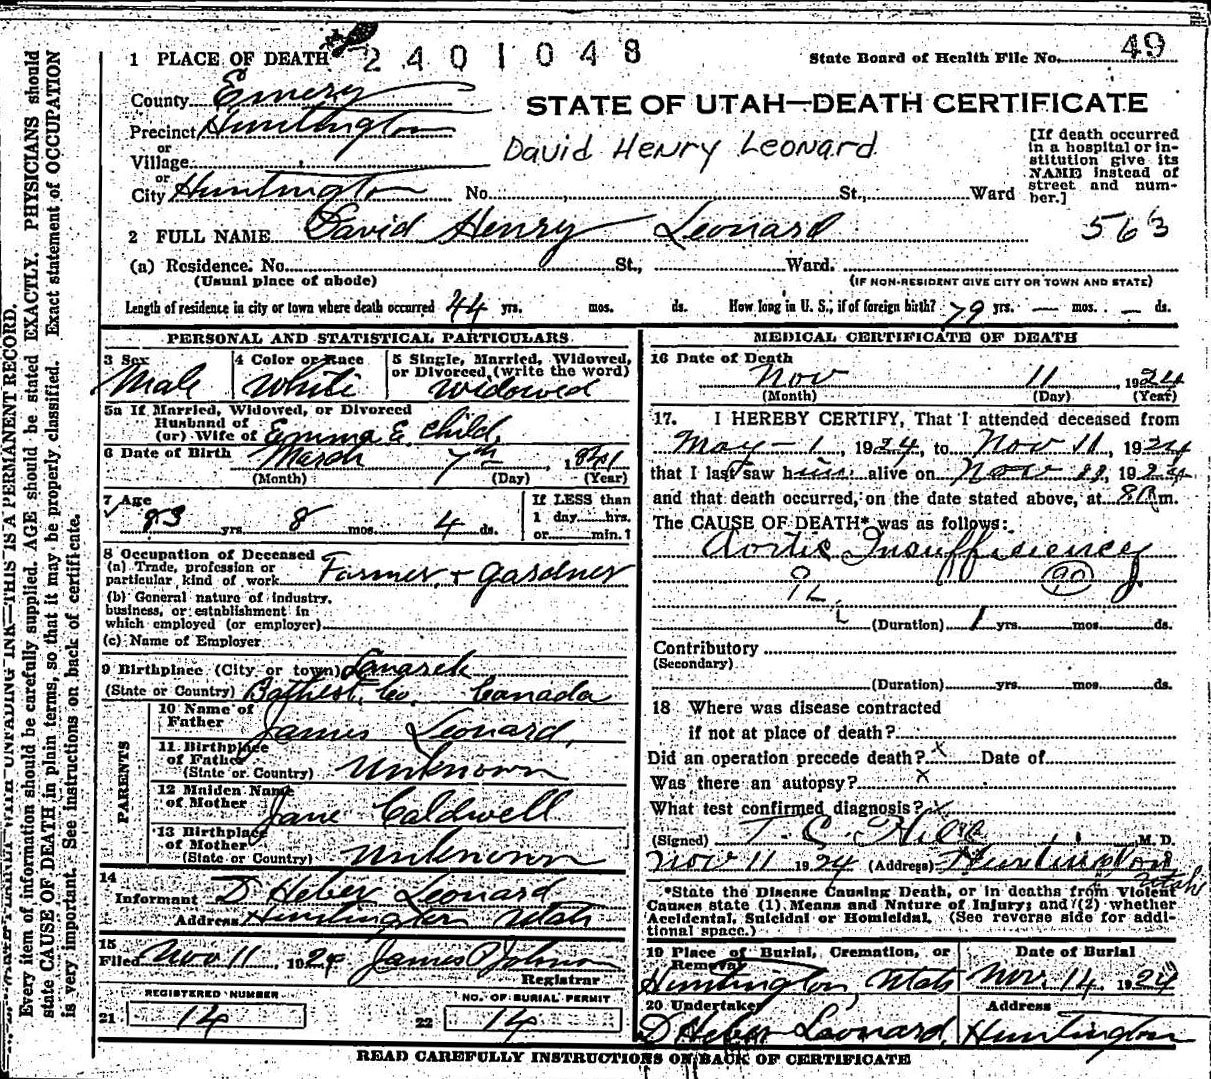 1 PLACE OF DEATH 2401048
State Board of Health File No. 49
County Emery
STATE OF UTAH—DEATH CERTIFICATE
Precinct Huntington
or
Village
David Henry Leonard
[If death occurred in a hospital or in-
stitution give its
NAME instead of
street and num-
ber.]
or
City Huntington No. , St., Ward
2 FULL NAME David Henry Leonard 563
(a) Residence. No. St., Ward.
(Usual place of abode) (IF NON-RESIDENT GIVE CITY OR TOWN AND STATE)
Length of residence in city or town where death occurred 44 yrs. mos. ds. How long in U. S., if of foreign birth? 79 yrs. — mos. — ds.
PERSONAL AND STATISTICAL PARTICULARS
3 Sex
Male
4 Color or Race
White
5 Single, Married, Widowed,
or Divorced (write the word)
Widowed
5a If Married, Widowed, or Divorced
Husband of
(or) Wife of Emma E. Child,
6 Date of Birth March 7th, 1841
(Month) (Day) (Year)
7 Age
83 yrs 8 mos. 4 ds.
If LESS than
1 day hrs.
or min.?
8 Occupation of Deceased
(a) Trade, profession or
particular kind of work Farmer + gardner
(b) General nature of industry,
business, or establishment in
which employed (or employer)
(c) Name of Employer
9 Birthplace (City or town) Lanarck
(State or Country) Bathest. Co. Canada
PARENTS
10 Name of
Father James Leonard,
11 Birthplace
of Father
(State or Country) Unknown
12 Maiden Name
of Mother Jane Caldwell
13 Birthplace
of Mother
(State or Country) Unknown
14
Informant D Heber Leonard
Address Huntington Utah
15
Filed Nov 11, 1924 James P Johnson
Registrar
REGISTERED NUMBER
21 14
NO. OF BURIAL PERMIT
22 14
MEDICAL CERTIFICATE OF DEATH
16 Date of Death
Nov 11, 1924
(Month) (Day) (Year)
17. I HEREBY CERTIFY, That I attended deceased from
May—1, 1924, to Nov 11, 1924
that I last saw him alive on Nov 11, 1924
and that death occurred, on the date stated above, at 8 m.
The CAUSE OF DEATH* was as follows:
Aortic Insufficiency
90
(Duration) 1 yrs. mos. ds.
Contributory
(Secondary)
(Duration) yrs. mos. ds.
18 Where was disease contracted
if not at place of death?
Did an operation precede death? x Date of
Was there an autopsy? x
What test confirmed diagnosis? x
(Signed) T. C. Hill, M. D.
Nov 11 1924 (Address) Huntington
Utah
*State the Disease Causing Death, or in deaths from Violent
Causes state (1) Means and Nature of Injury; and (2) whether
Accidental, Suicidal or Homicidal. (See reverse side for addi-
tional space.)
19 Place of Burial, Cremation, or
Removal
Huntington, Utah
Date of Burial
Nov. 14. 1924
20 Undertaker
D Heber Leonard,
Address
Huntington
READ CAREFULLY INSTRUCTIONS ON BACK OF CERTIFICATE
Every item of information should be carefully supplied. AGE should be stated EXACTLY. PHYSICIANS should
state CAUSE OF DEATH in plain terms, so that it may be properly classified. Exact statement of OCCUPATION
is very important. See instructions on back of certificate.
WITH UNFADING INK—THIS IS A PERMANENT RECORD.